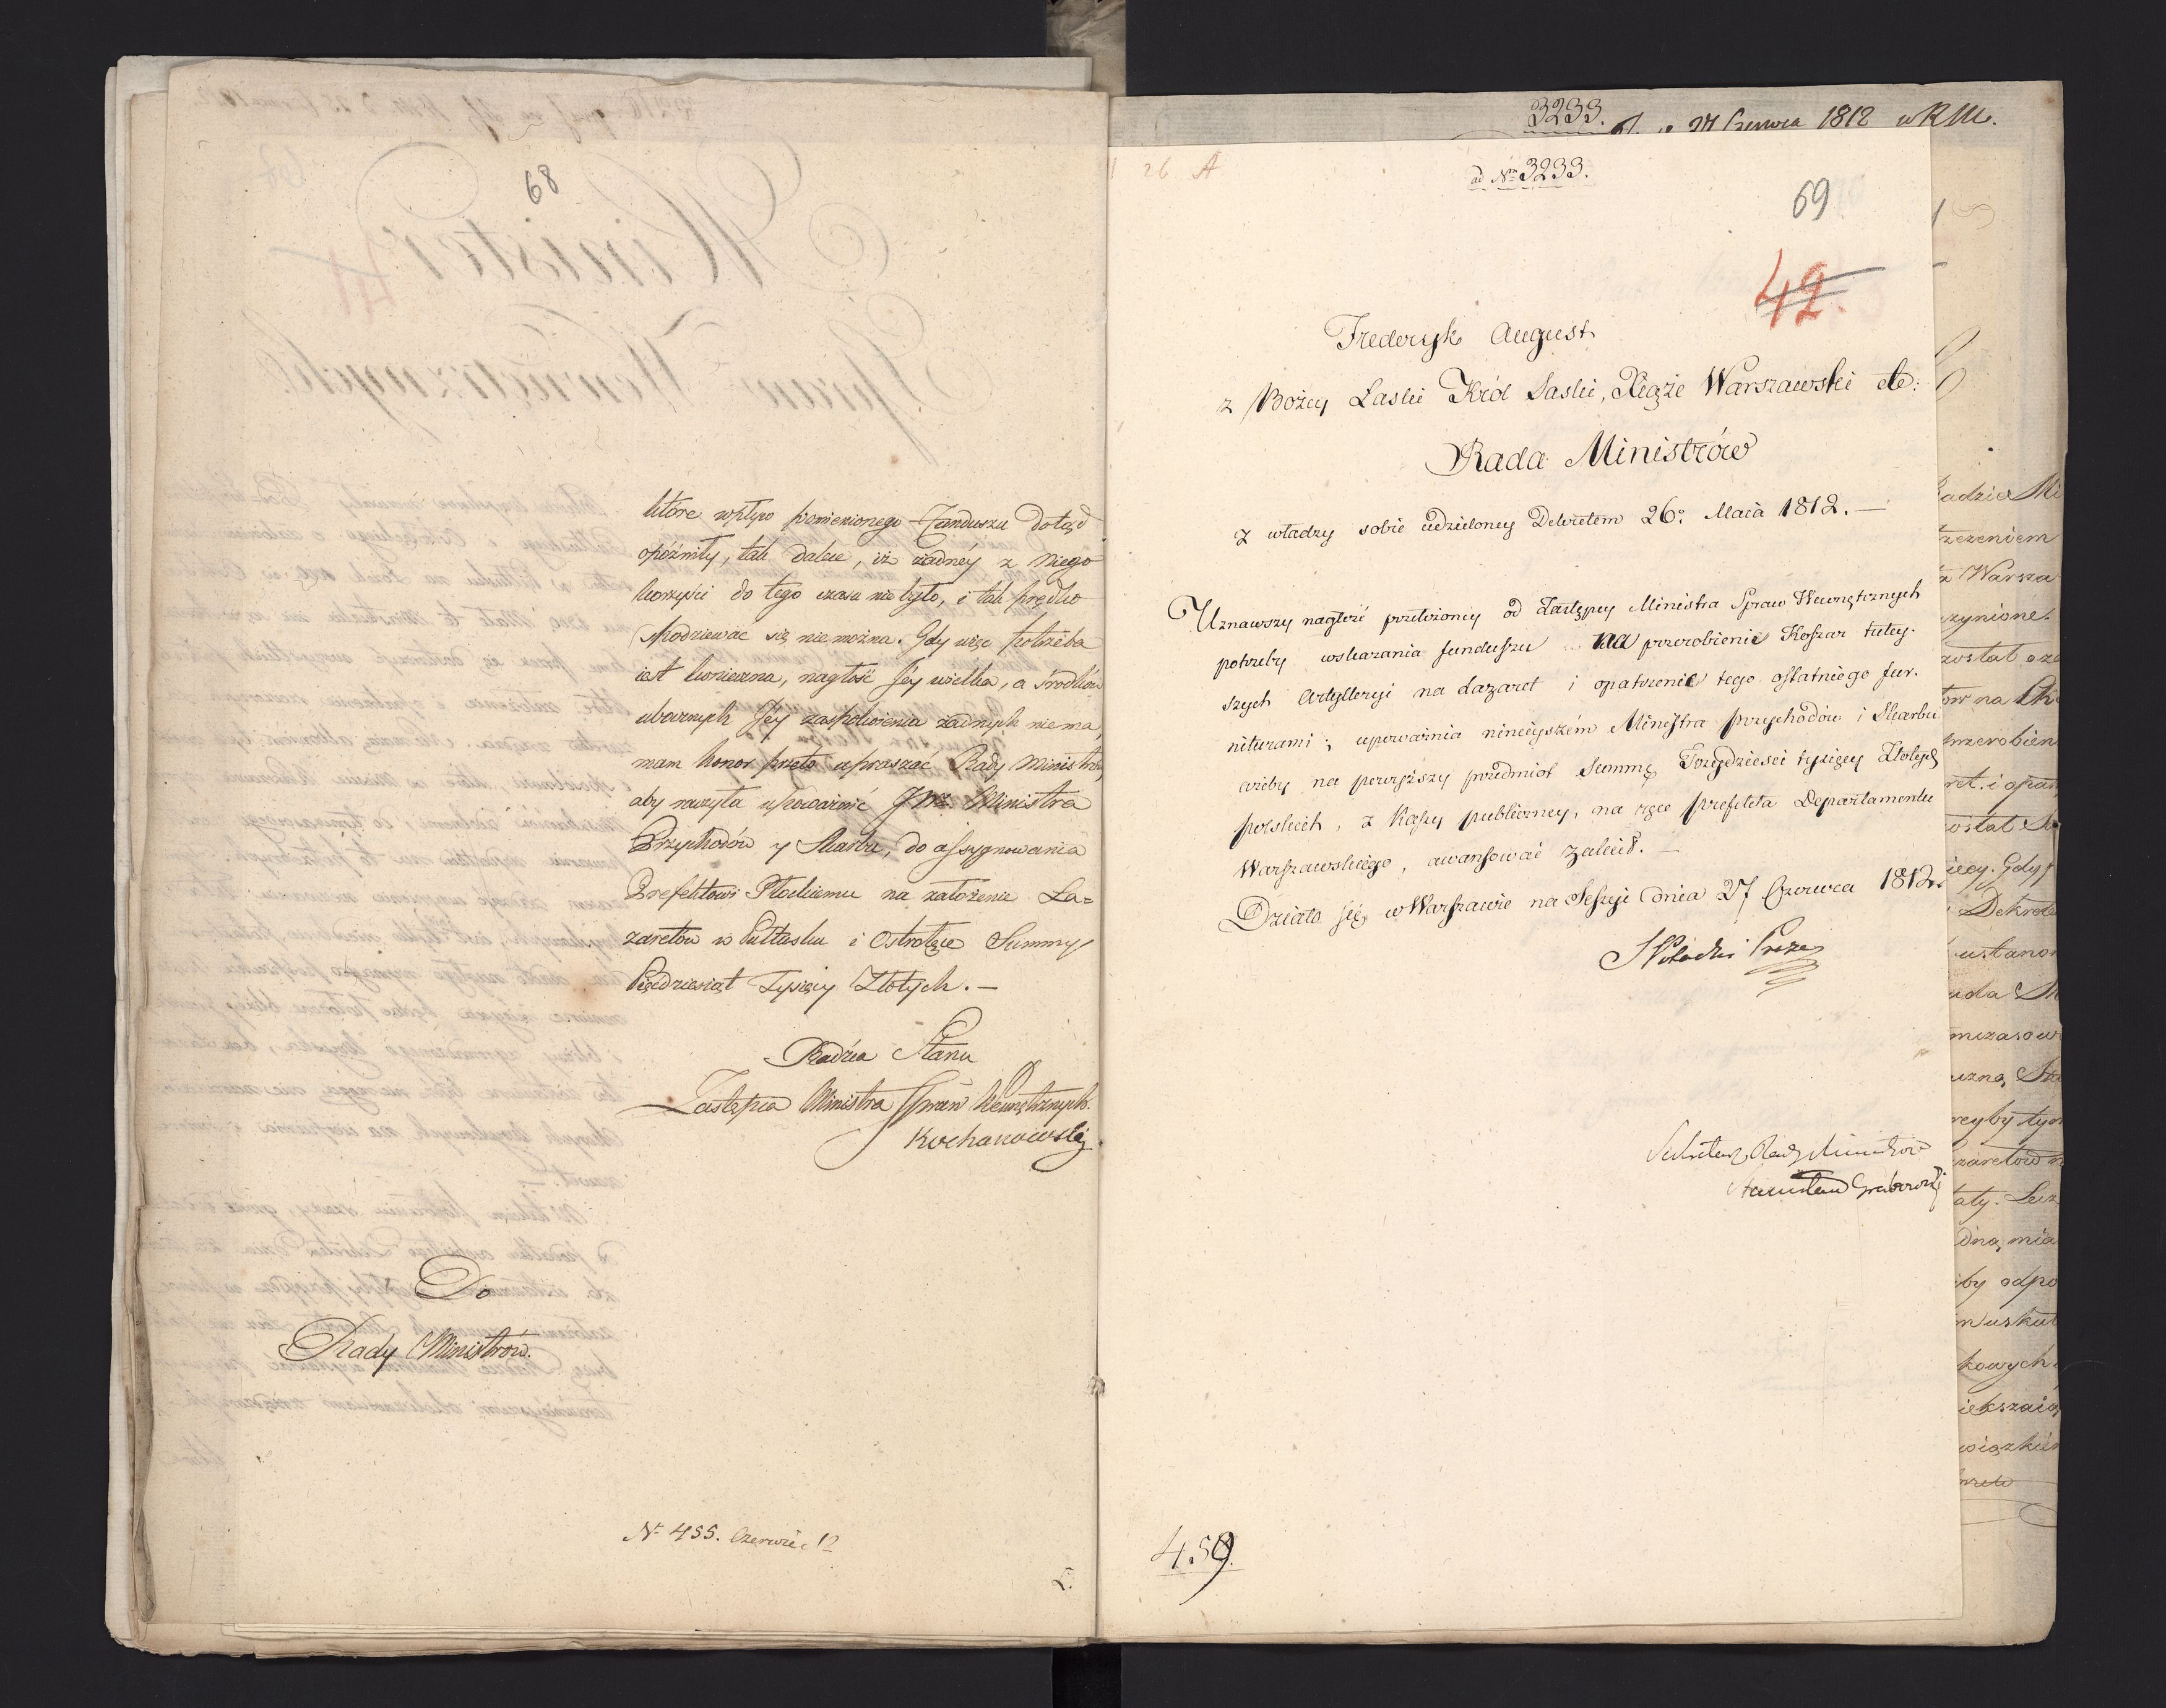 68
które wpływ pomienionego Funduszu dotąd
opóźniły, tak dalece, iż żadnéy z niego
korzyści do tego czasu nie było, i tak prędko
spodziewać się nie można. Gdy więc potrzeba
iest konieczna, nagłość Jey wielka, a środków
ubocznych Jey zaspokoienia żadnych nie ma,
mam honor przeto upraszać Rady Ministrów,
aby raczyła upoważnić JW. Ministra
Przychodów y Skarbu, do assygnowania
Prefektowi Płockiemu na założenie La=
zaretów w Pułtusku i Ostrołęce Summy
Pięćdziesiąt Tysięcy Złotych. —
Radca Stanu
Zastępca Ministra Spraw Wewnętrznych.
Kochanowski
Do
Rady Ministrów.
Nr 455. Czerwiec 12
3233.
27 Czerwca 1812 w RM.
26 A
ad Nm 3233.
69
42.
Frederyk August
z Bożey Łaski Król Saski, Xiąże Warszawski etc:
Rada Ministrów
z władzy sobie udzieloney Dekretem 26o. Maia 1812. —
Uznawszy nagłość przełożoney od Zastępcy Ministra Spraw Wewnętrznych
potrzeby wskazania funduszu na przerobienie Koszar tutey-
szych Artylleryi na Lazaret i opatrzenie tego ostatniego fur-
niturami; upoważnia ninieyszém Ministra przychodów i Skarbu
ażeby na powyższy przedmiot Summę Trzydzieści tysięcy Złotych
polskich, z Kassy publiczney, na ręce prefekta Departamentu
Warszawskiego, awansować zalecił. —
Działo się w Warszawie na Sessyi dnia 27 Czerwca 1812.
S Potocki Prezes
Sekretarz Rady Ministrów
Stanisław Grabowski
459.